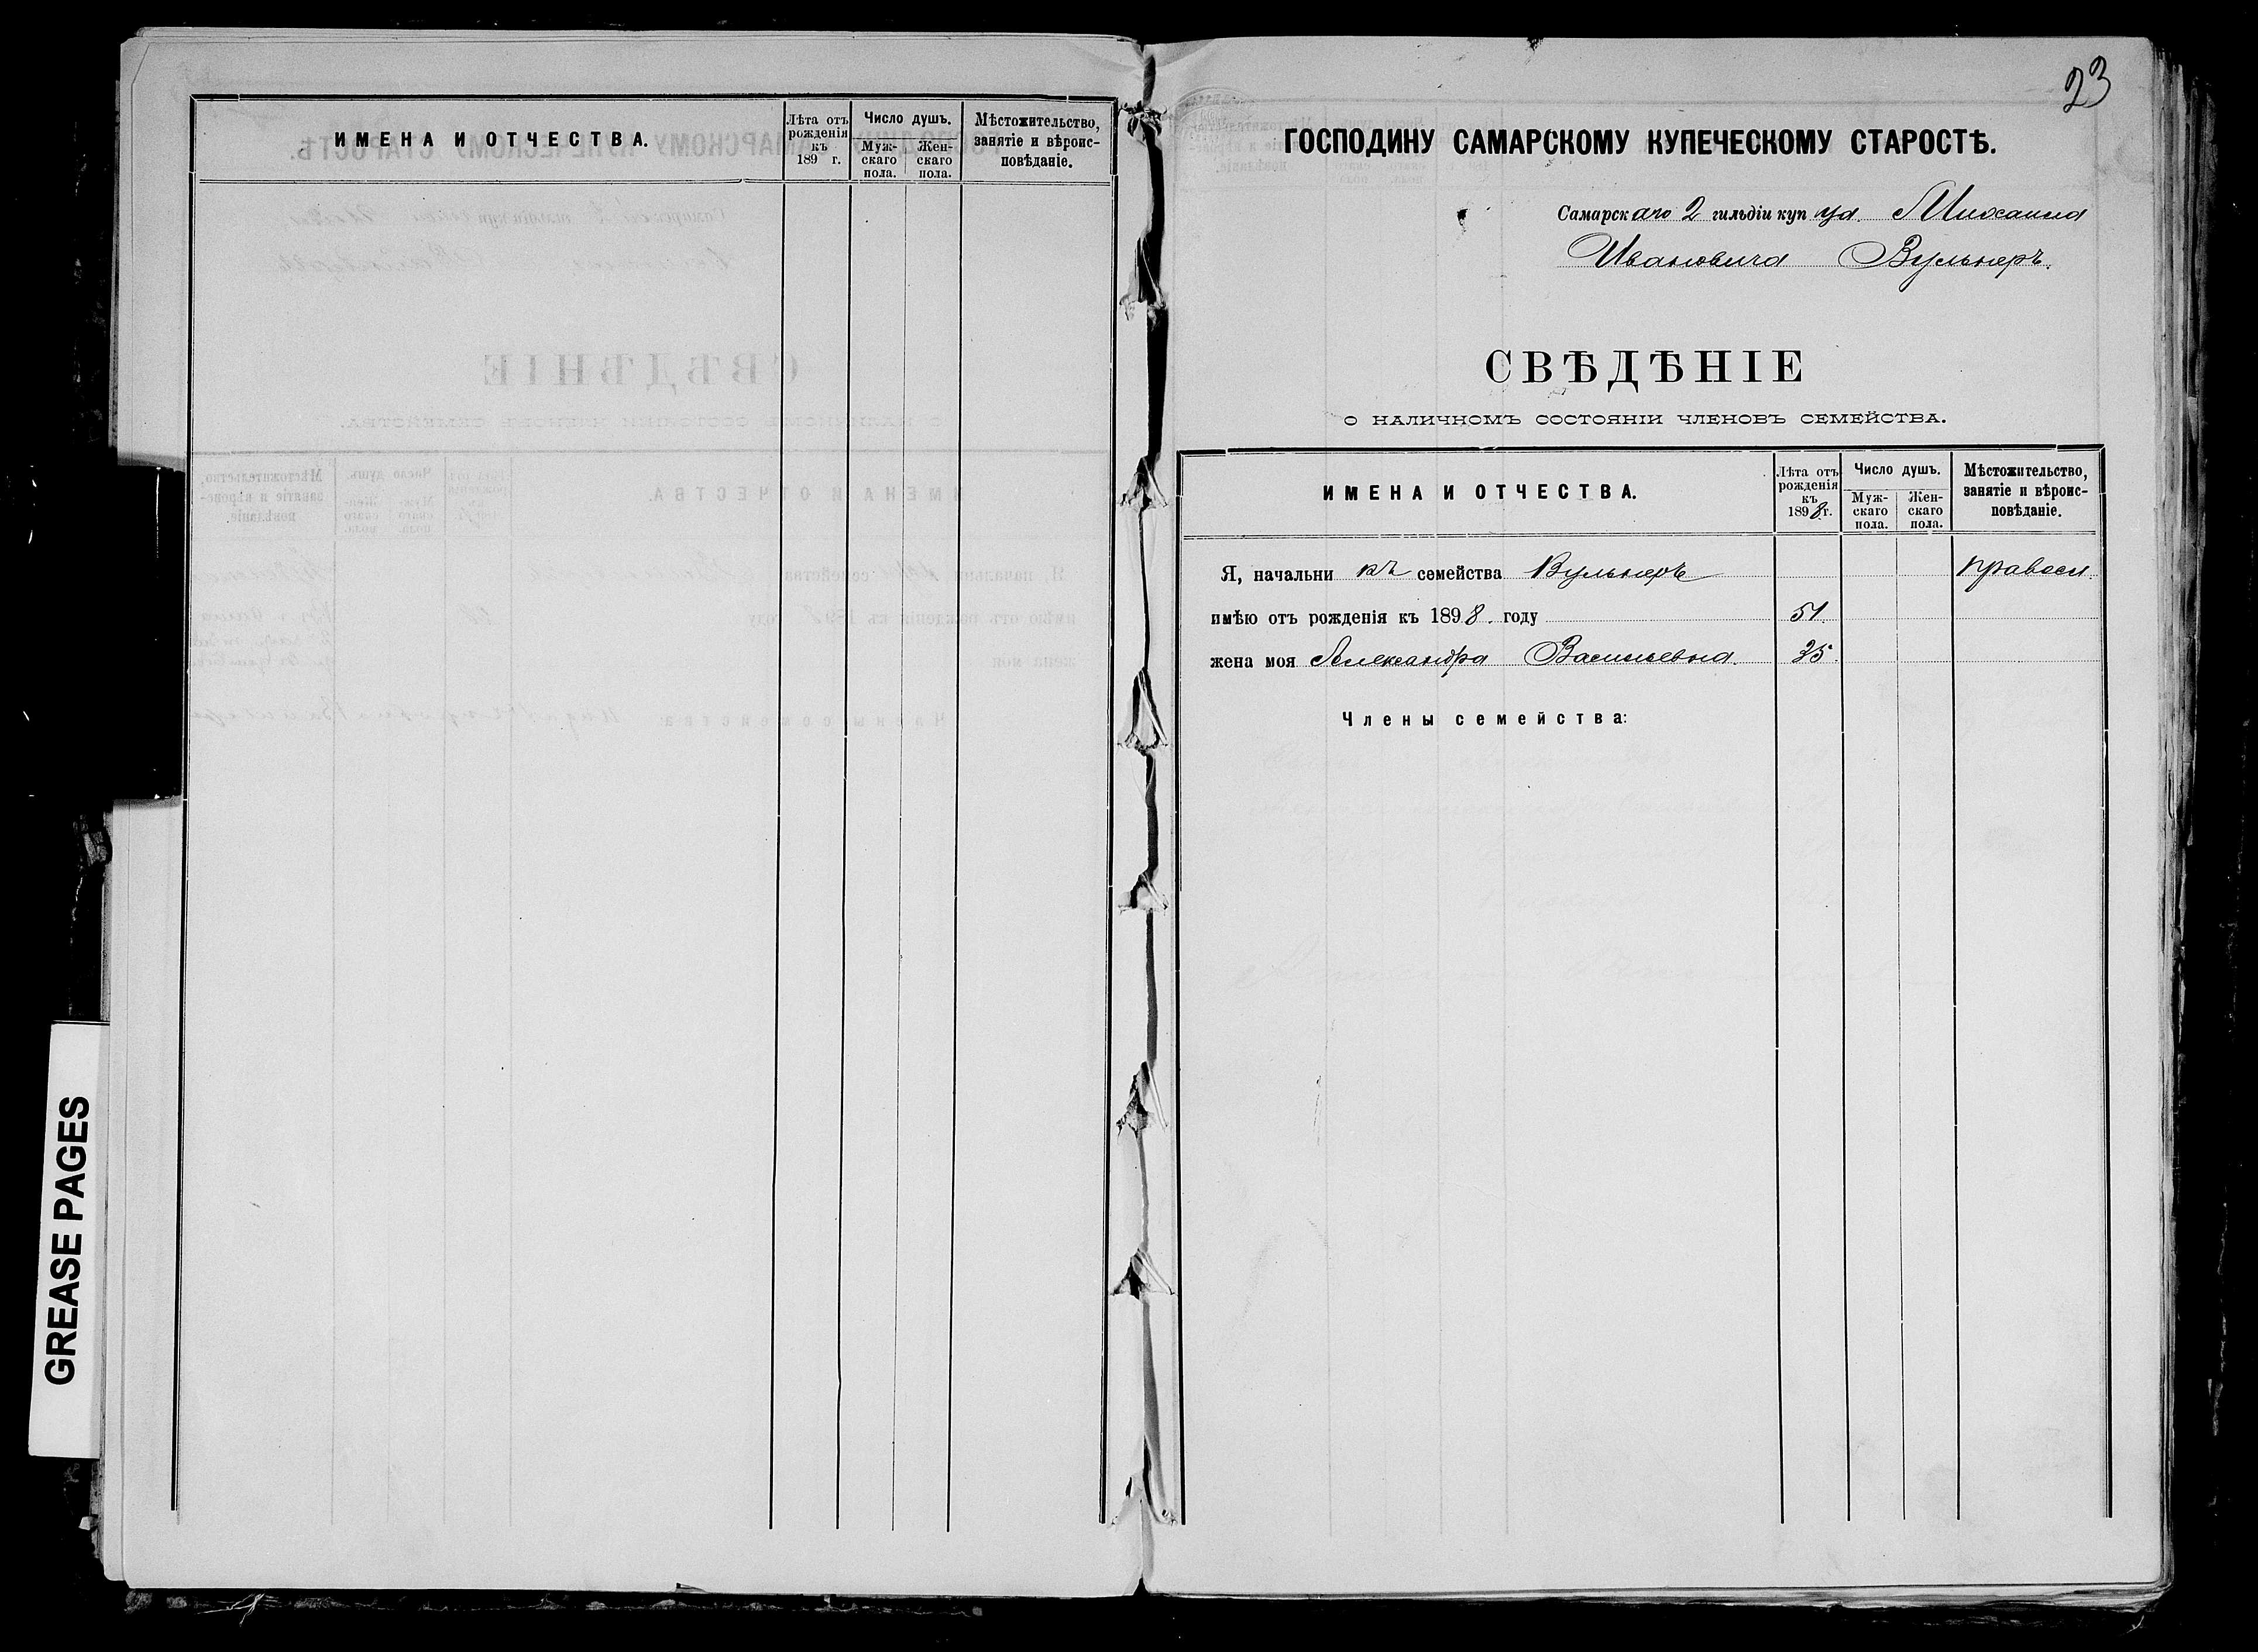 ИМЕНА И ОТЧЕСТВА.
Лѣта отъ рожденія къ 189 г.
Число душъ.
Муж-скаго пола.
Жен-скаго пола.
Мѣстожительство, занятіе и вѣроис-повѣданіе.
23
ГОСПОДИНУ САМАРСКОМУ КУПЕЧЕСКОМУ СТАРОСТѢ.
Самарскаго 2 гильдіи купца Михаила
Ивановича Вульнеръ.
СВѢДѢНІЕ
О НАЛИЧНОМЪ СОСТОЯНІИ ЧЛЕНОВЪ СЕМЕЙСТВА.
ИМЕНА И ОТЧЕСТВА.
Лѣта отъ рожденія къ 1898 г.
Число душъ.
Муж-скаго пола.
Жен-скаго пола.
Мѣстожительство, занятіе и вѣроис-повѣданіе.
Я, начальникъ семейства Вульнеръ правосл.
имѣю отъ рожденія къ 1898. году 51.
жена моя Александра Васильевна. 35.
Члены семейства:
GREASE PAGES